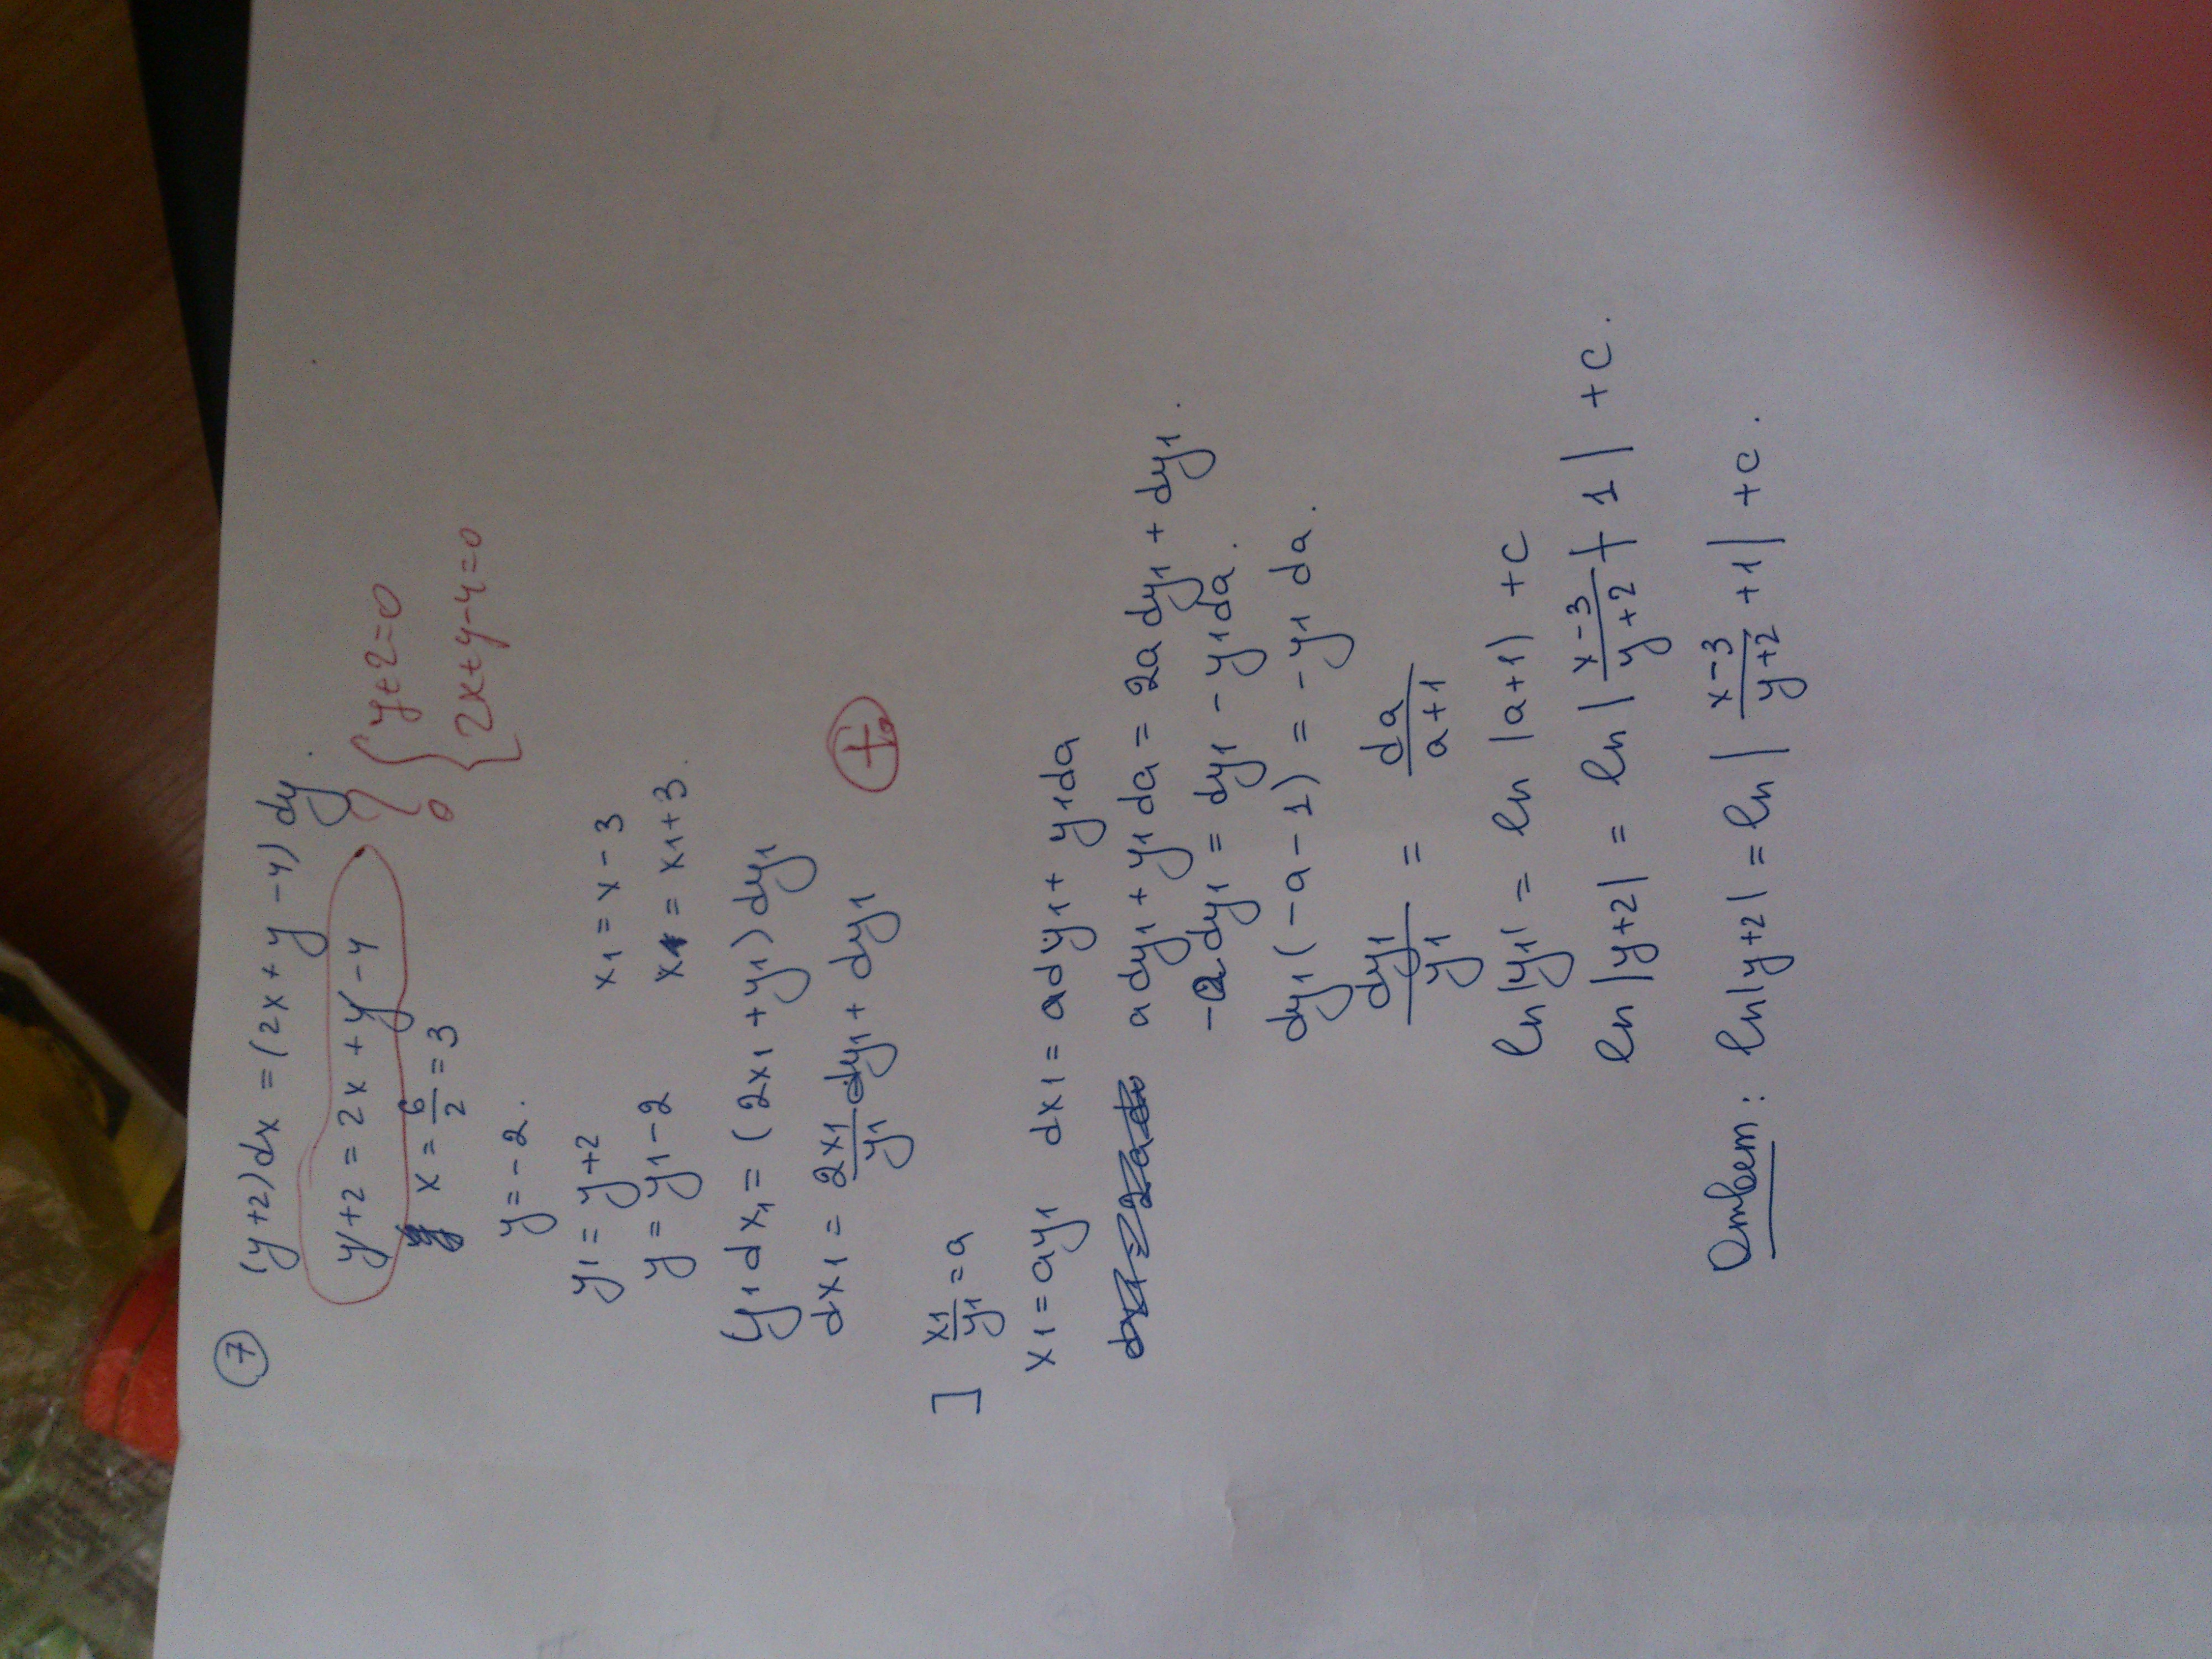 ⑦ (y+2)dx = (2x+y-4)dy.
y+2 = 2x+y-4 } { y+2=0
2x+y-4=0
x = 6/2 = 3
y = -2.
y₁ = y+2 x₁ = x-3
y = y₁-2 x = x₁+3.
(y₁dx₁ = (2x₁+y₁)dy₁
dx₁ = 2x₁/y₁ dy₁ + dy₁
⊕
] x₁/y₁ = a
x₁ = ay₁ dx₁ = ady₁ + y₁da
ady₁ + y₁da = 2ady₁ + dy₁.
-ady₁ = dy₁ - y₁da.
dy₁(-a-1) = -y₁da.
dy₁/y₁ = da/a+1
ln|y₁| = ln|a+1) + c
ln|y+2| = ln|x-3/y+2 + 1| + c.
Ответ: ln|y+2| = ln|x-3/y+2 + 1| + c.